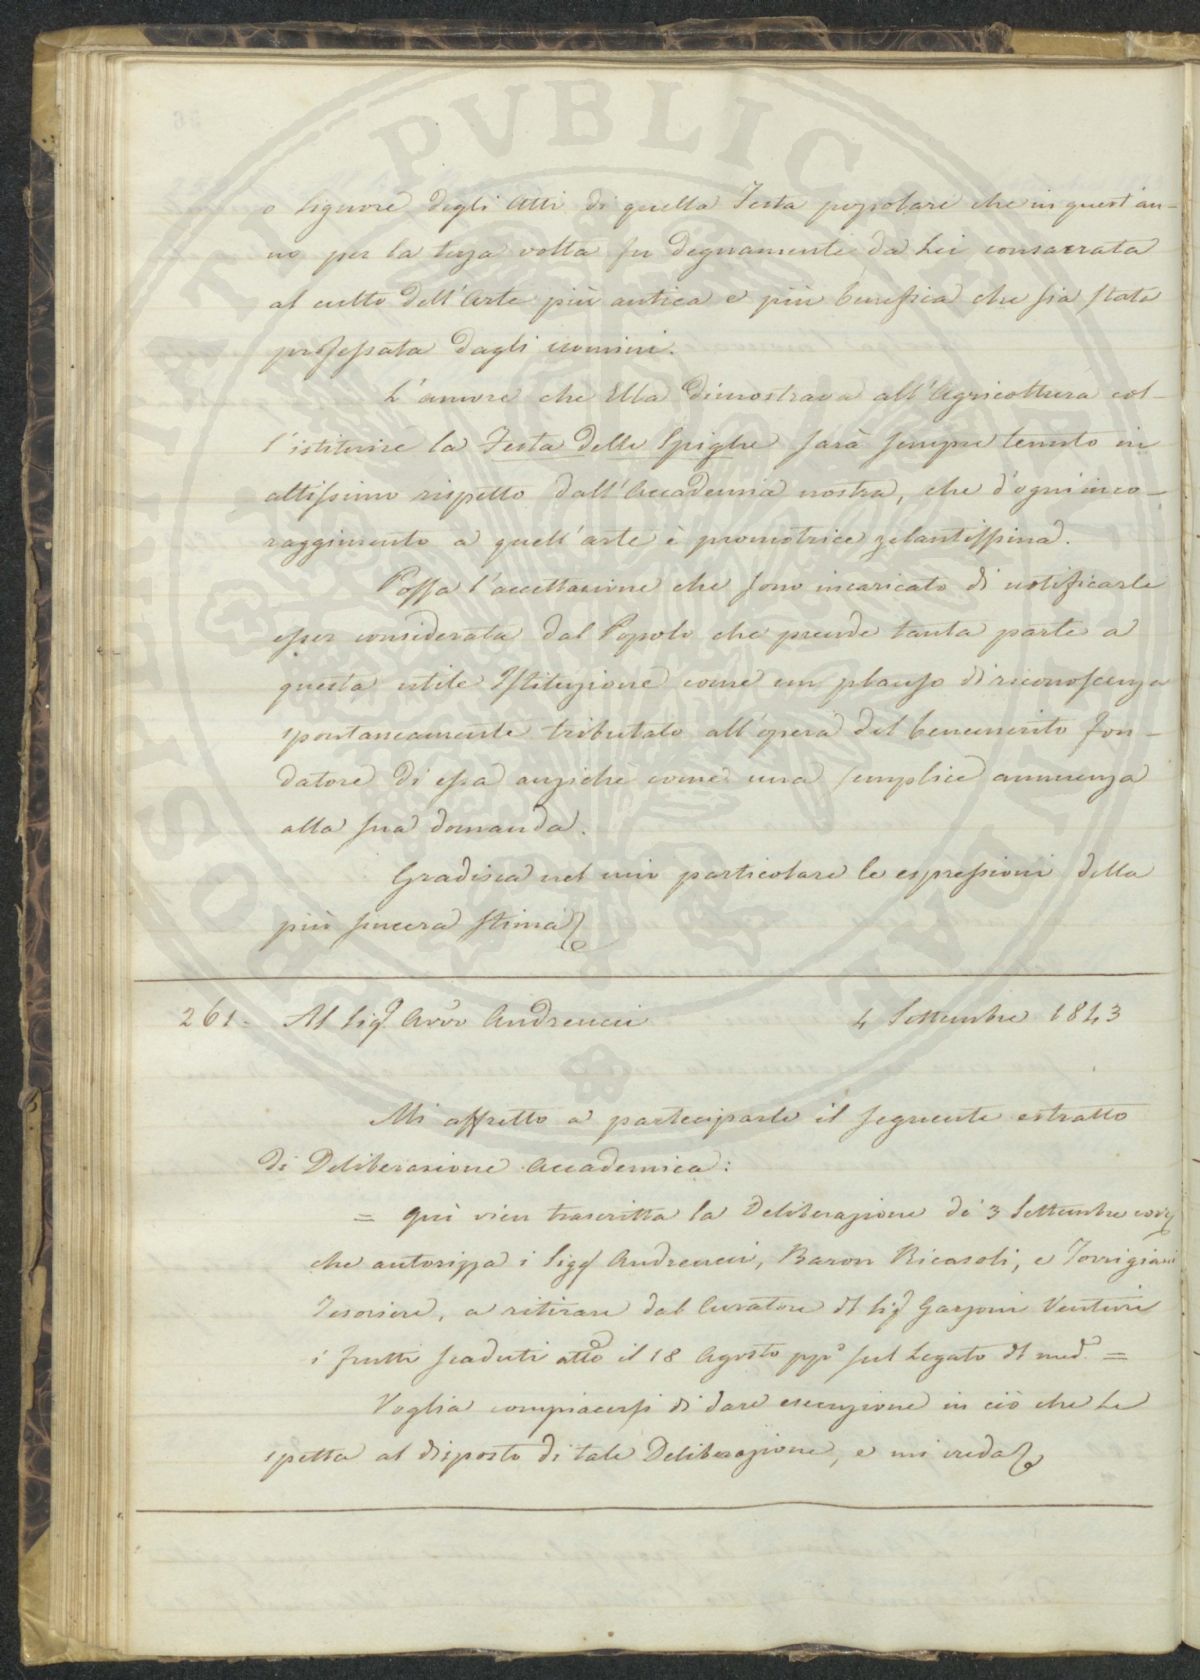 o Signore degli Atti di quella Festa popolare che in quest'an-
no per la terza volta fu degnamente da Lei consacrata
al culto dell'Arte più antica e più benefica che sia stata
professata dagli uomini.
L'amore che Ella dimostrava all'Agricoltura col-
l'istituire la Festa delle Spighe sarà sempre tenuto in
altissimo rispetto dall'Accademia nostra, che d'ogni inco-
raggimento a quell'arte è promotrice zelantissima.
Possa l'accettazione che sono incaricato di notificarle
esser considerata dal Popolo che prende tanta parte a
questa utile Istituzione come un plauso di riconoscenza
spontaneamente tributato all'opera del benemerito fon-
datore di essa anzichè come una semplice annuenza
alla sua domanda.
Gradisca nel mio particolare le espressioni della
più sincera stima
261. Al Sig. Avv. Andreucci 4 Settembre 1843
Mi affretto a parteciparle il seguente estratto
di Deliberazione Accademica:
= Qui vien trascritta la Deliberazione de' 3 Settembre
che autorizza i Sigg. Andreucci, Baron Ricasoli, e Torrigiani
Tesoriere, a ritirare dal Curatore del Sig. Garzoni Venturi
i frutti scaduti a tto il 18 Agosto pp.o sul Legato del med.o =
Voglia compiacersi di dare esecuzione in ciò che Le
spetta al disposto di tale Deliberazione, e mi creda
POSSIT PVBLIC